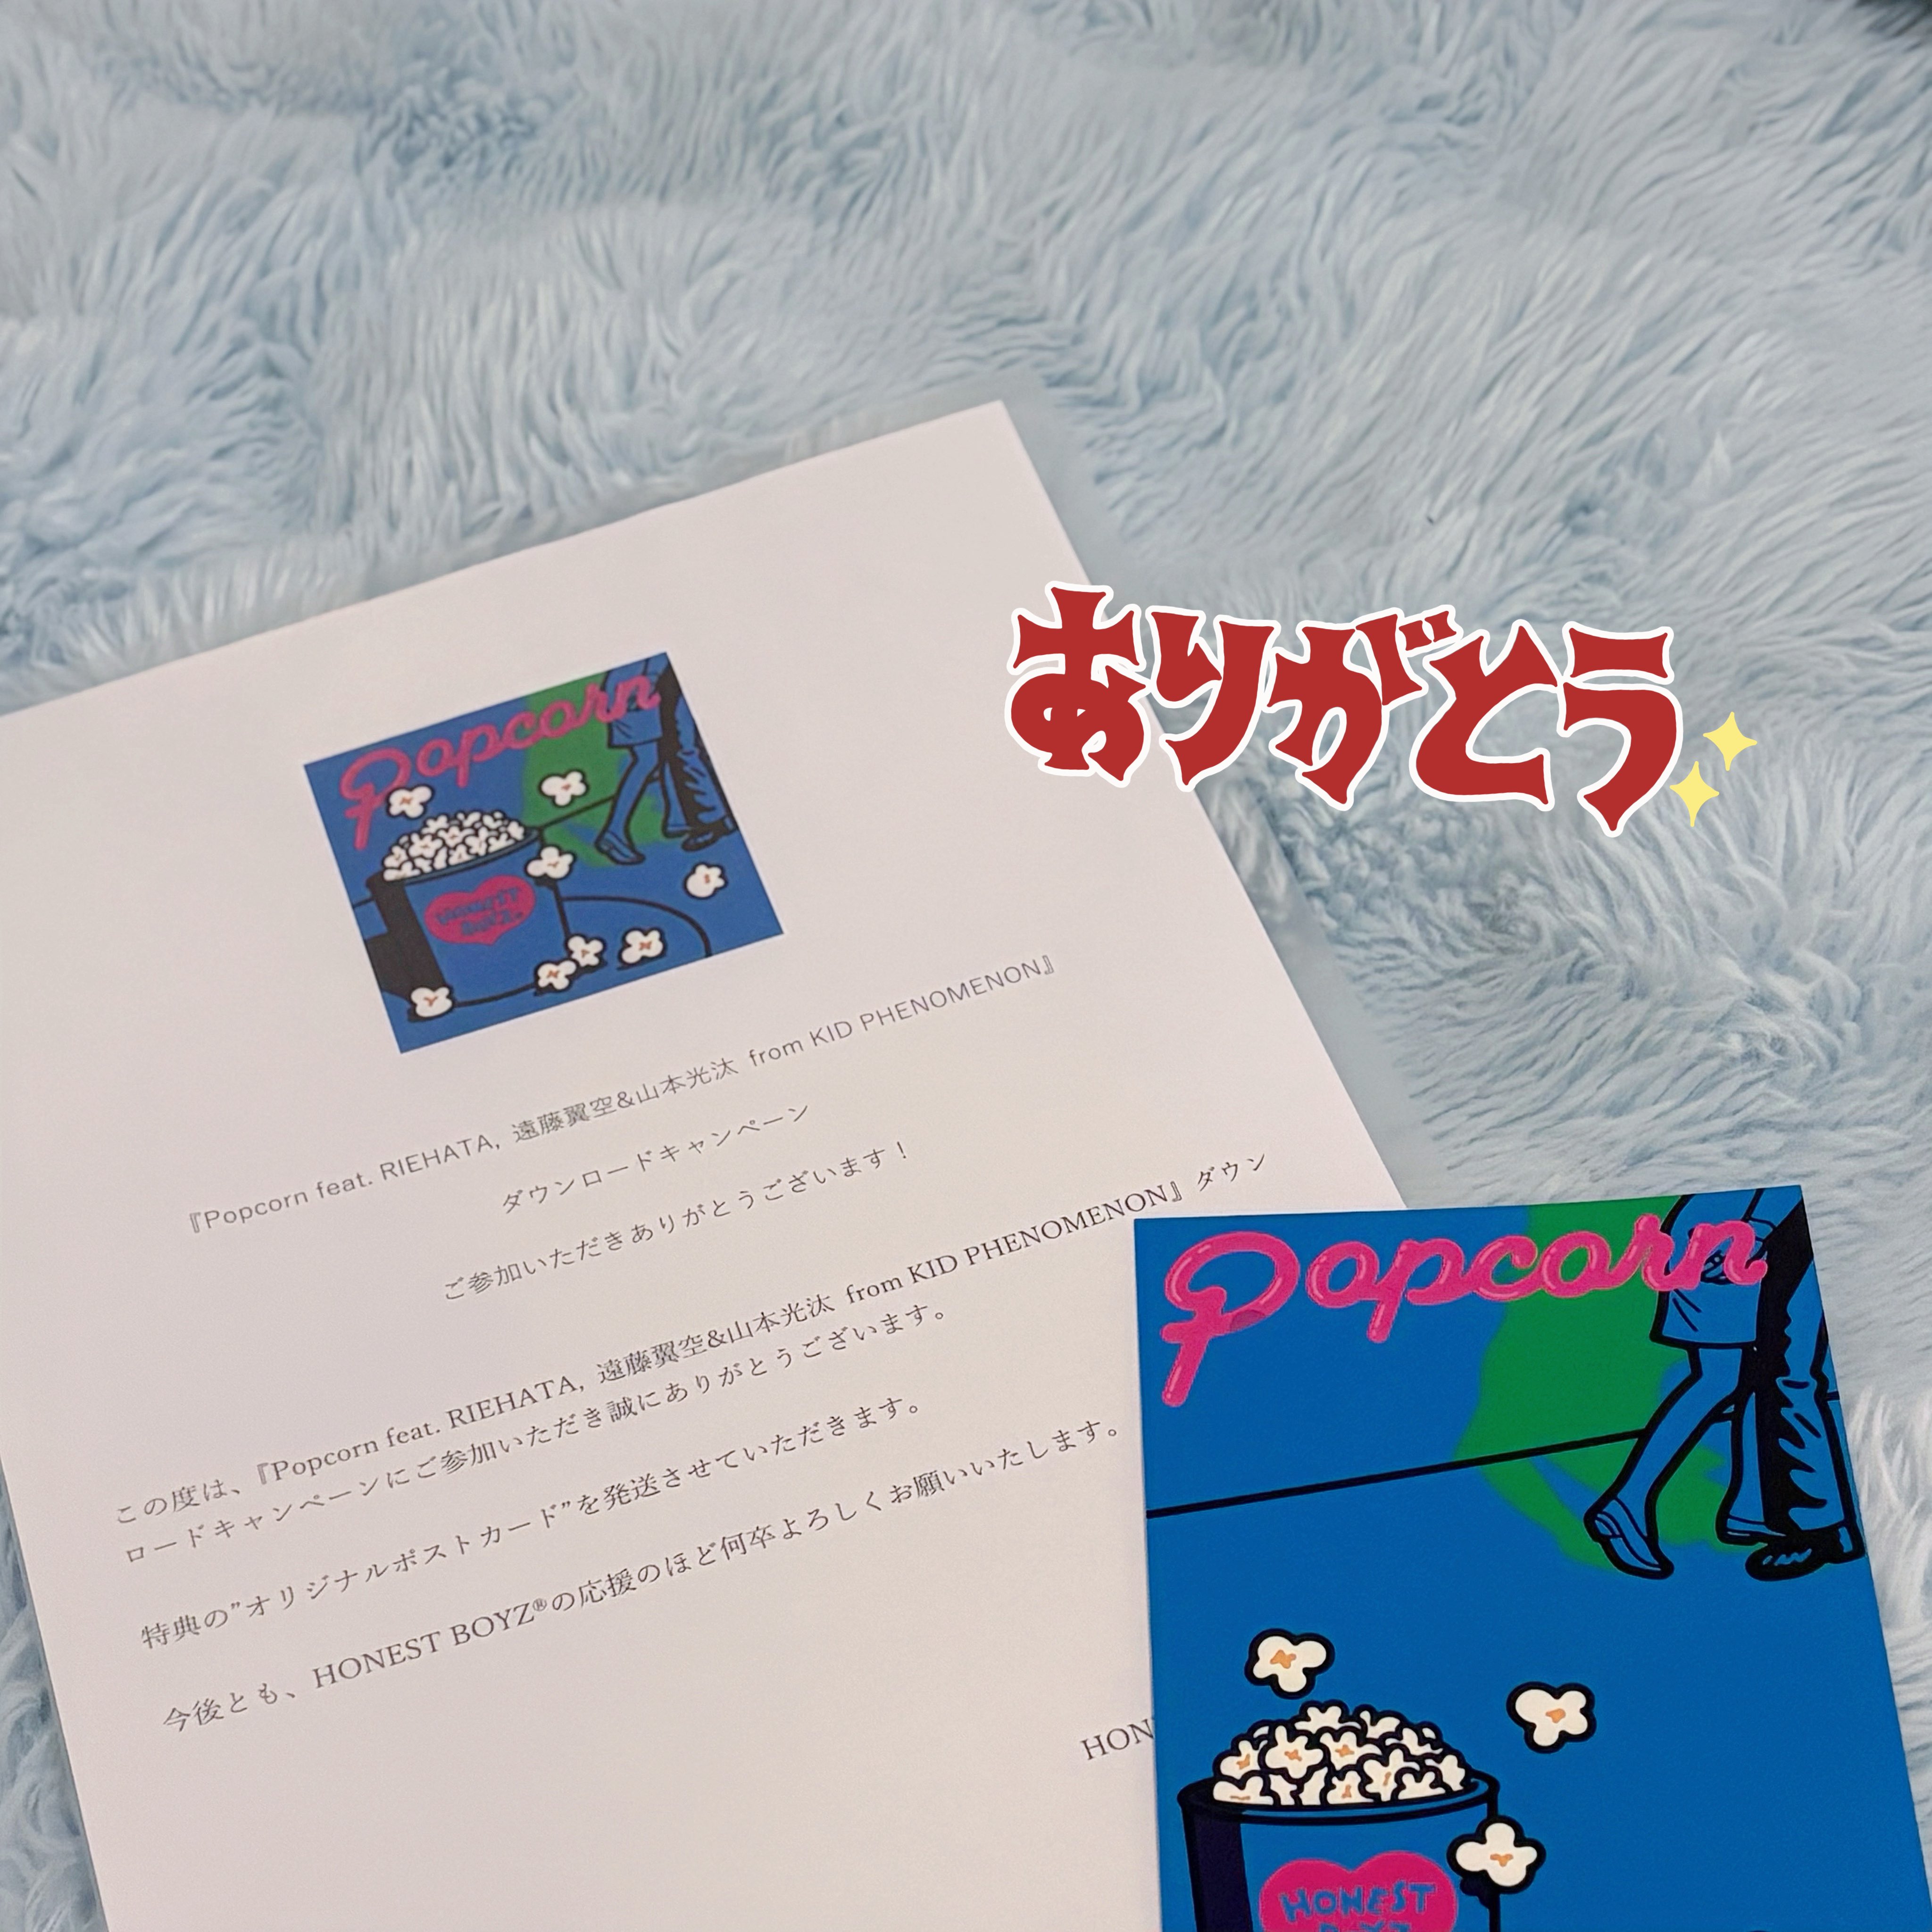 ありがとう
Popcorn
HONEST
BOYZ®
『Popcorn feat. RIEHATA, 遠藤翼空&山本光汰 from KID PHENOMENON』
ダウンロードキャンペーン
ご参加いただきありがとうございます！
この度は、『Popcorn feat. RIEHATA, 遠藤翼空&山本光汰 from KID PHENOMENON』ダウン
ロードキャンペーンにご参加いただき誠にありがとうございます。
特典の”オリジナルポストカード”を発送させていただきます。
今後とも、HONEST BOYZ®の応援のほど何卒よろしくお願いいたします。
HON
Popcorn
HONEST